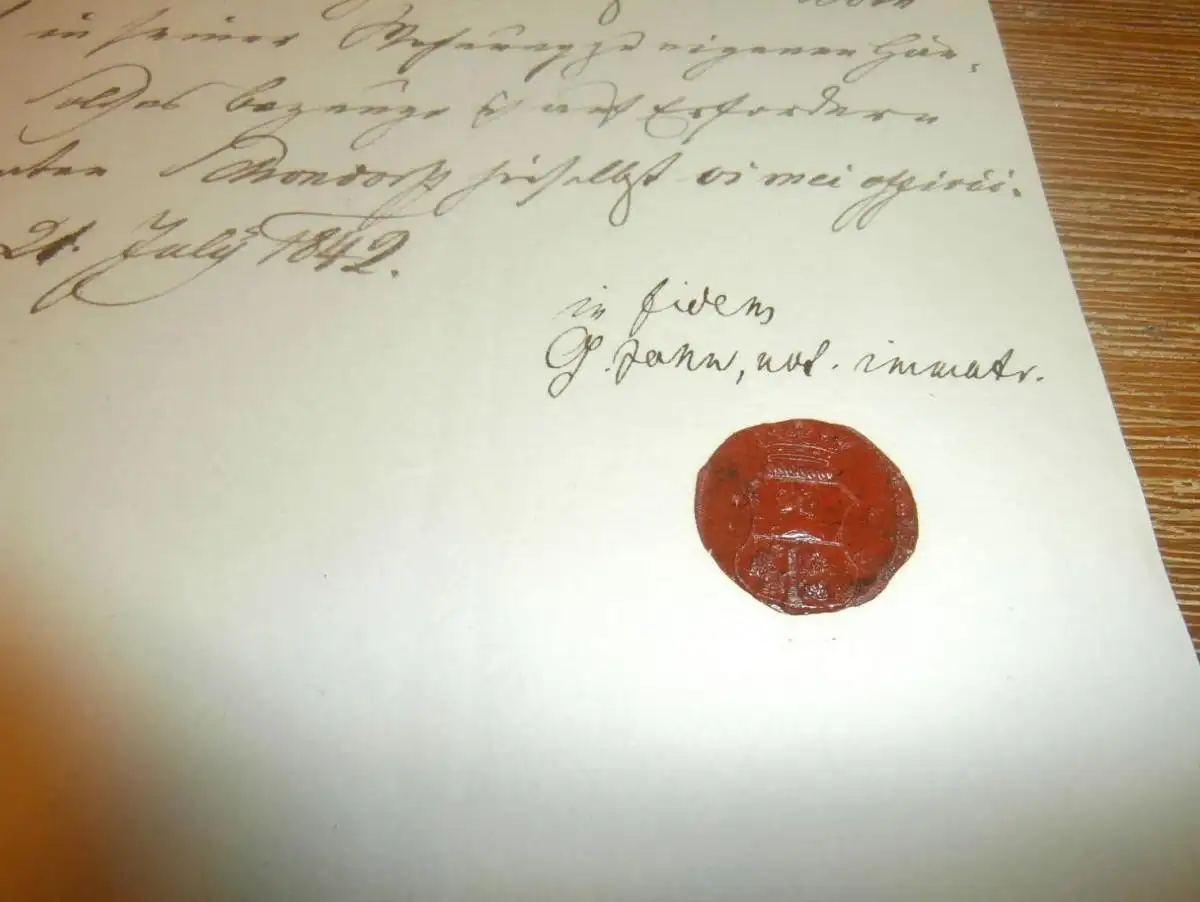 in seiner Wohnung zu eigenen Hän-
solches bezeuge ich auf Erfordern
hieselbst vi mei officii.
21. July 1842.
in fidem
G. Jahn, not. immatr.